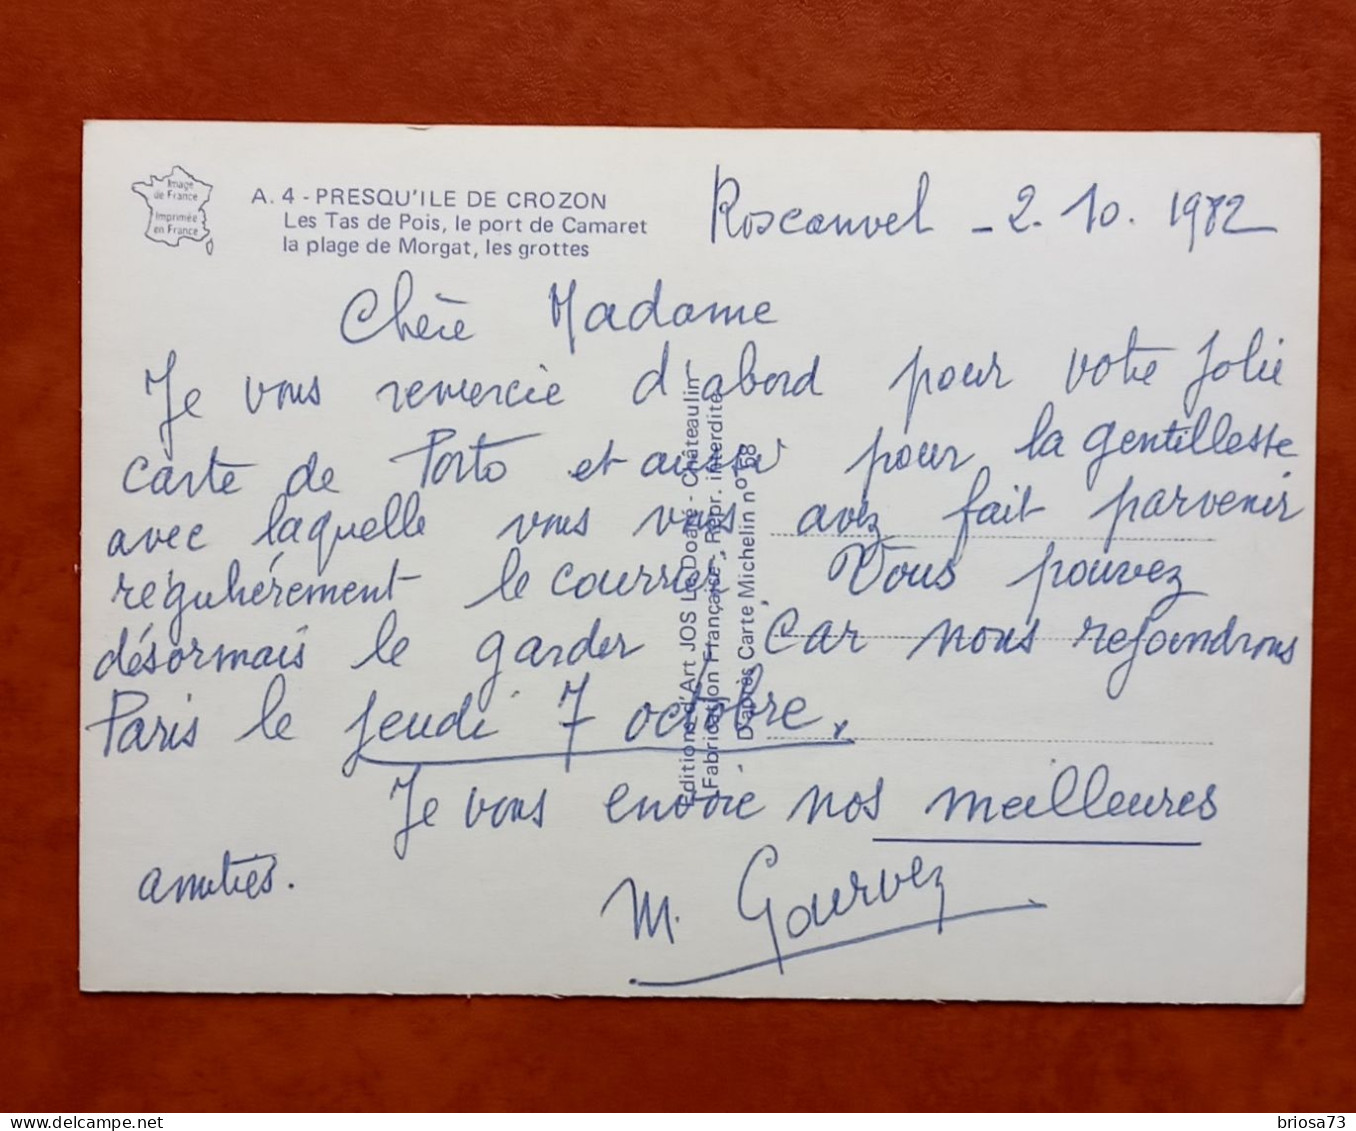 Image
de France
Imprimée
en France
A. 4 - PRESQU'ILE DE CROZON
Les Tas de Pois, le port de Camaret
la plage de Morgat, les grottes
Roscanvel - 2. 10. 1982
Chère Madame
Je vous remercie d'abord pour votre jolie
carte de Porto et aussi pour la gentillesse
avec laquelle vous vous avez fait parvenir
régulièrement le courrier. Vous pouvez
désormais le garder car nous rejoindrons
Paris le jeudi 7 octobre.
Je vous envoie nos meilleures
amitiés.
M. Gourvez
Editions d'Art JOS Le Doaré - Châteaulin
Fabrication Française - Repr. interdite
D'après Carte Michelin n° 168
www.delcampe.net
briosa73